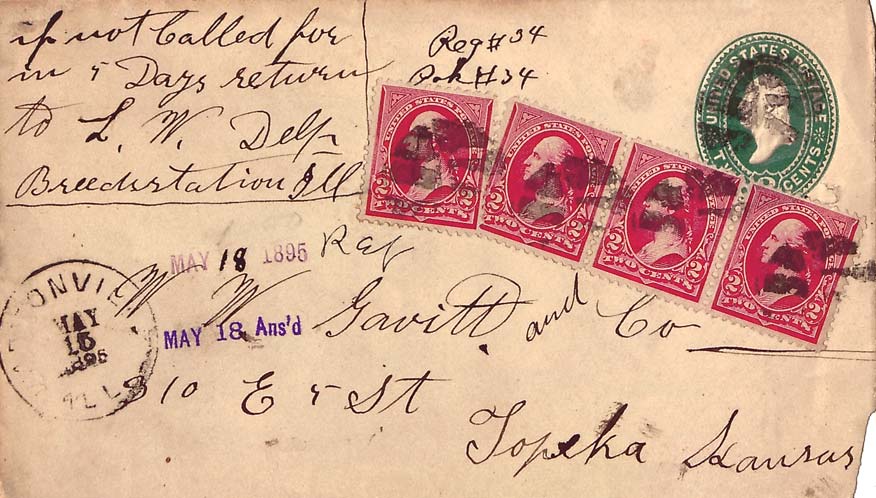 if not Called for
in 5 Days return
to L. W. Delp
Breeds station Ill
Reg # 34
Pck # 34
UNITED STATES POSTAGE
TWO CENTS
UNITED STATES POSTAGE
2 2
TWO CENTS
UNITED STATES POSTAGE
2 2
TWO CENTS
UNITED STATES POSTAGE
2 2
TWO CENTS
UNITED STATES POSTAGE
2 2
TWO CENTS
MAY 18 1895
Reg
MAY 18 Ans'd
MAY
15
1895
ILL
W W Gavitt and Co
310 E 5 St
Topeka Kansas